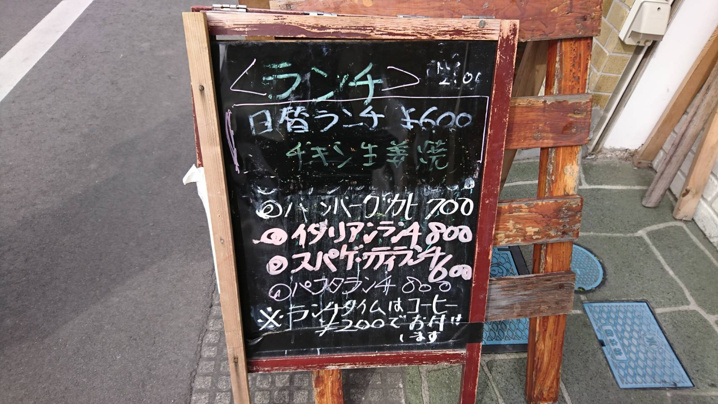 <ランチ>
日替ランチ ¥600
チキン生姜焼
ハンバーグ 700
イタリアンランチ 800
スパゲッティランチ 600
ランチ 800
※ランチタイムはコーヒー
¥200でお付け
します